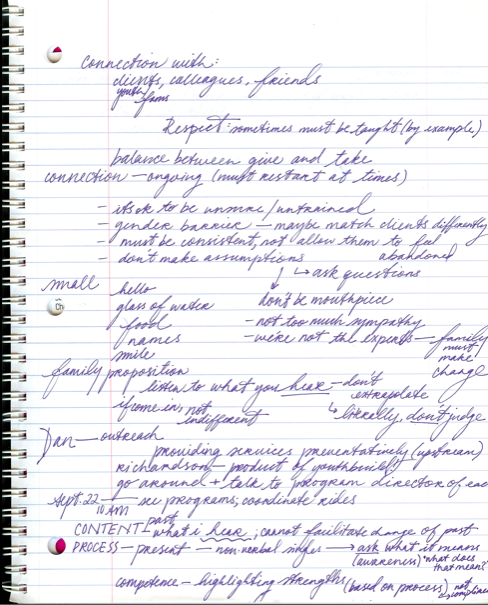 connection with:
clients, colleagues, friends
youth fams
Respect: sometimes must be taught (by example)
balance between give and take
connection — ongoing (must restart at times)
- it's ok to be unsure / untrained
- gender barrier — maybe match clients differently
- must be consistent, not allow them to feel abandoned
- don't make assumptions
↳ ask questions
small hello
glass of water
food
names
smile
don't be mouthpiece
- not too much sympathy
- we're not the experts — family must make change
family proposition
listen to what you hear — don't extrapolate
↳ literally, don't judge
if come in, not indifferent
Dan — outreach
providing services preventatively (upstream)
richardson — product of youthbuild
go around + talk to program director of ea
Sept. 22 — see programs; coordinate rides
10 AM
past
CONTENT — what i hear; cannot facilitate change of past
PROCESS — present — non-verbal → ask what it means
(awareness) "what does that mean?"
competence — highlighting strengths (based on process) not